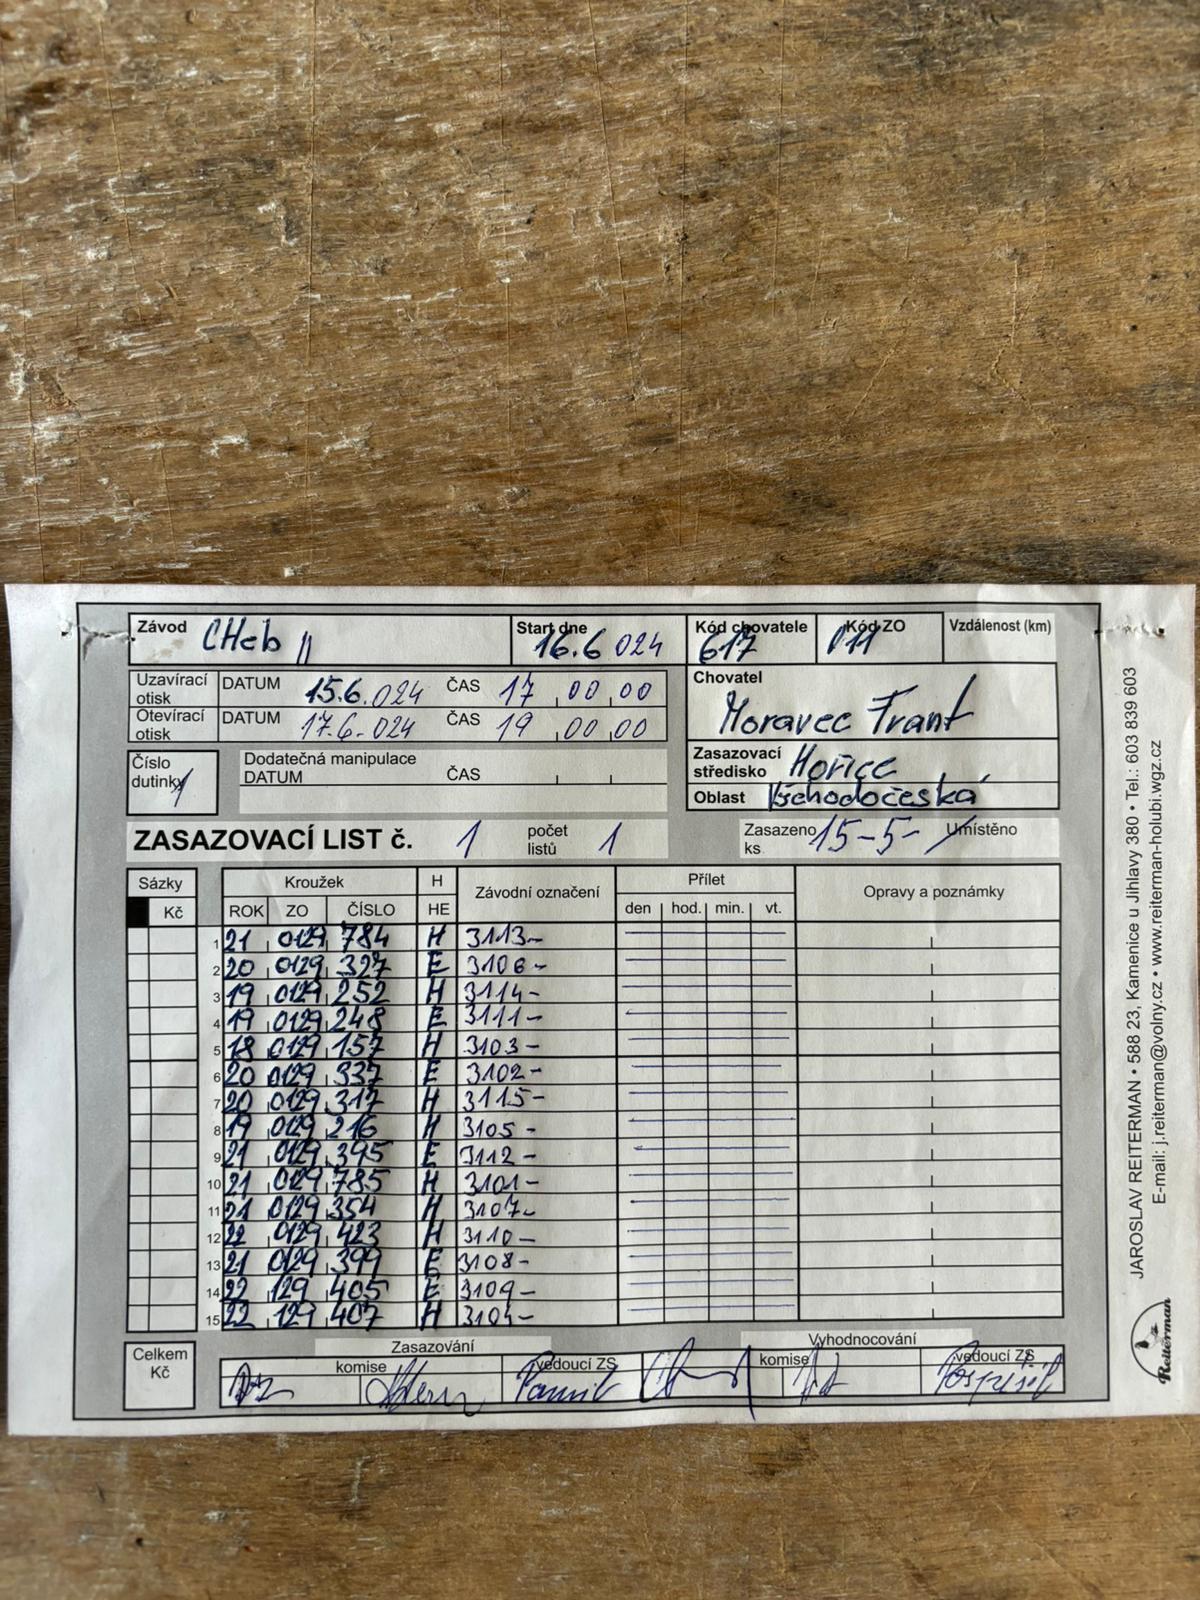 Závod CHeb II Start dne 16.6 024 Kód chovatele 617 Kód ZO 011 Vzdálenost (km)
Uzavírací otisk DATUM 15.6.024 ČAS 17 00 00
Otevírací otisk DATUM 17.6.024 ČAS 19 00 00
Chovatel Moravec Frant
Číslo dutinky 1 Dodatečná manipulace DATUM ČAS
Zasazovací středisko Hořice
Oblast Východočeská
ZASAZOVACÍ LIST č. 1 počet listů 1 Zasazeno ks 15-5- Umístěno
Sázky Kroužek H Závodní označení Přílet Opravy a poznámky
Kč ROK ZO ČÍSLO HE den hod. min. vt.
1 21 0129 784 H 3113-
2 20 0129 327 E 3106-
3 19 0129 252 H 3114-
4 19 0129 248 E 3111-
5 18 0129 157 H 3103-
6 20 0129 337 E 3102-
7 20 0129 317 H 3115-
8 19 0129 216 H 3105-
9 21 0129 395 E 3112-
10 21 0129 785 H 3101-
11 21 0129 354 H 3107-
12 22 0129 423 H 3110-
13 21 0129 399 E 3108-
14 22 129 405 E 3109-
15 22 129 407 H 3104-
Celkem Kč Zasazování Vyhodnocování
komise vedoucí ZS komise vedoucí ZS
Pospíšil
JAROSLAV REITERMAN • 588 23, Kamenice u Jihlavy 380 • Tel.: 603 839 603
E-mail: j.reiterman@volny.cz • www.reiterman-holubi.wgz.cz
Reiterman